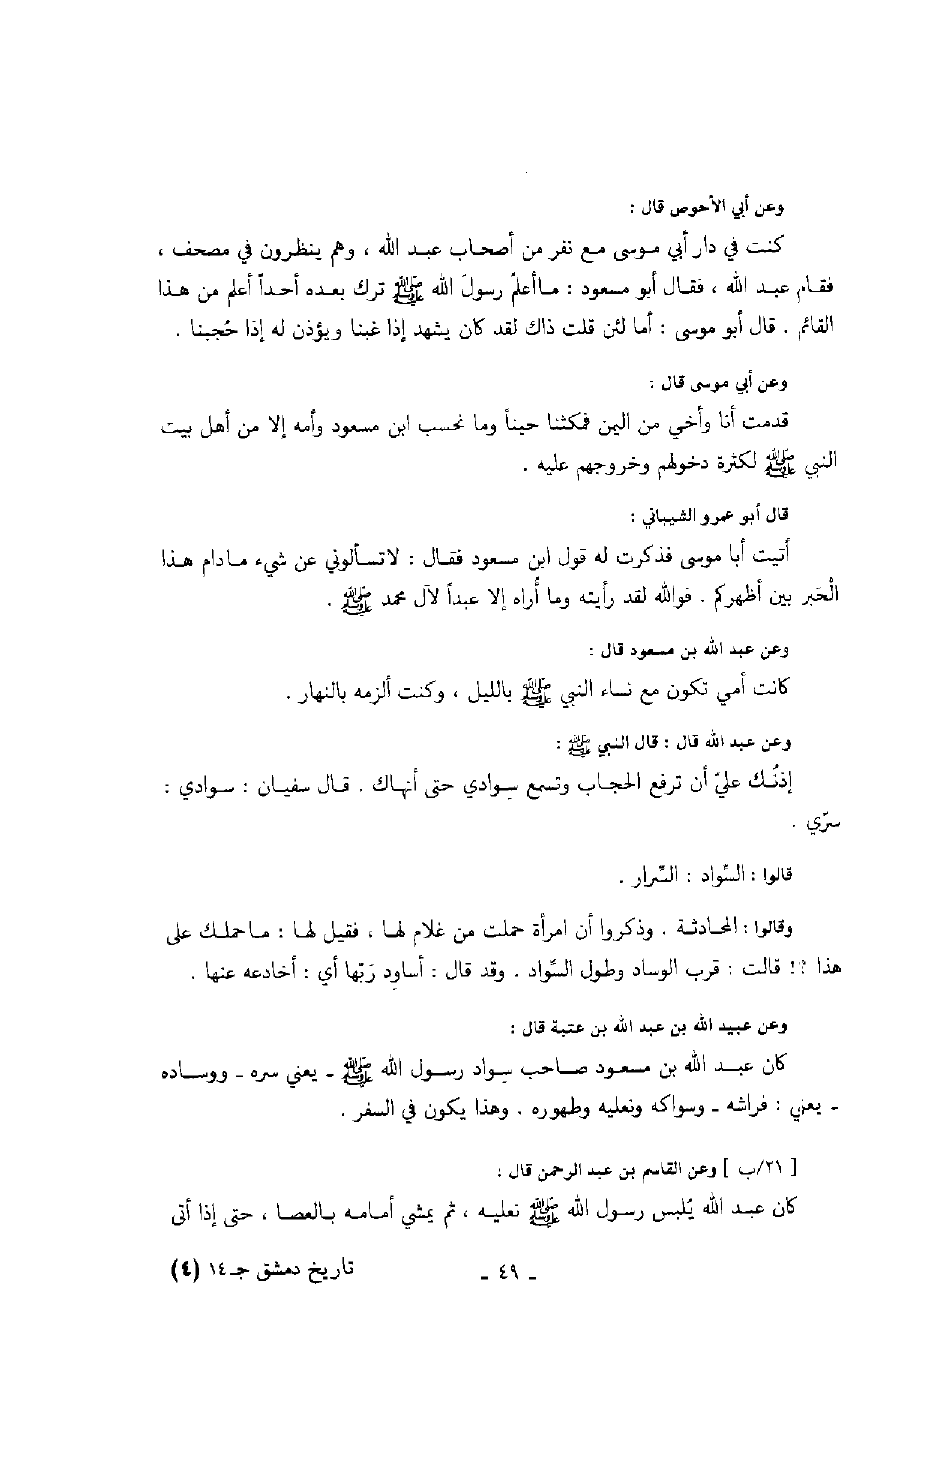 وعن أبي الأحوص قال :
كنت في دار أبي موسى مع نفر من أصحاب عبد الله ، وهم ينظرون في مصحف ،
فقام عبد الله ، فقال أبو مسعود : ماأعلمُ رسولَ الله ﷺ ترك بعده أحداً أعلم من هذا
القائم . قال أبو موسى : أما لئن قلت ذاك لقد كان يشهد إذا غبنا ويؤذن له إذا حُجبنا .
وعن أبي موسى قال :
قدمت أنا وأخي من اليمن فمكثنا حيناً وما نحسب ابن مسعود وأمه إلا من أهل بيت
النبي ﷺ لكثرة دخولهم وخروجهم عليه .
قال أبو عمرو الشيباني :
أتيت أبا موسى فذكرت له قول ابن مسعود فقال : لاتسألوني عن شيء مادام هذا
الْحَبر بين أظهركم . فوالله لقد رأيته وما أُراه إلا عبداً لآل محمد ﷺ .
وعن عبد الله بن مسعود قال :
كانت أمي تكون مع نساء النبي ﷺ بالليل ، وكنت ألزمه بالنهار .
وعن عبد الله قال : قال النبي ﷺ :
إذنُك عليّ أن ترفع الحجاب وتسمع سوادي حتى أنهاك . قال سفيان : سوادي :
سرّي .
قالوا : السِّواد : السِّرار .
وقالوا : المحادثة . وذكروا أن امرأة حملت من غلام لها ، فقيل لها : ماحملك على
هذا ؟! قالت : قرب الوساد وطول السِّواد . وقد قال : أساود رَبّها أي : أخادعه عنها .
وعن عبيد الله بن عبد الله بن عتبة قال :
كان عبد الله بن مسعود صاحب سواد رسول الله ﷺ - يعني سره - ووساده
- يعني : فراشه - وسواكه ونعليه وطهوره . وهذا يكون في السفر .
[ ٢١/ب ] وعن القاسم بن عبد الرحمن قال :
كان عبد الله يُلبس رسول الله ﷺ نعليه ، ثم يمشي أمامه بالعصا ، حتى إذا أتى
- ٤٩ - تاريخ دمشق جـ١٤ (٤)